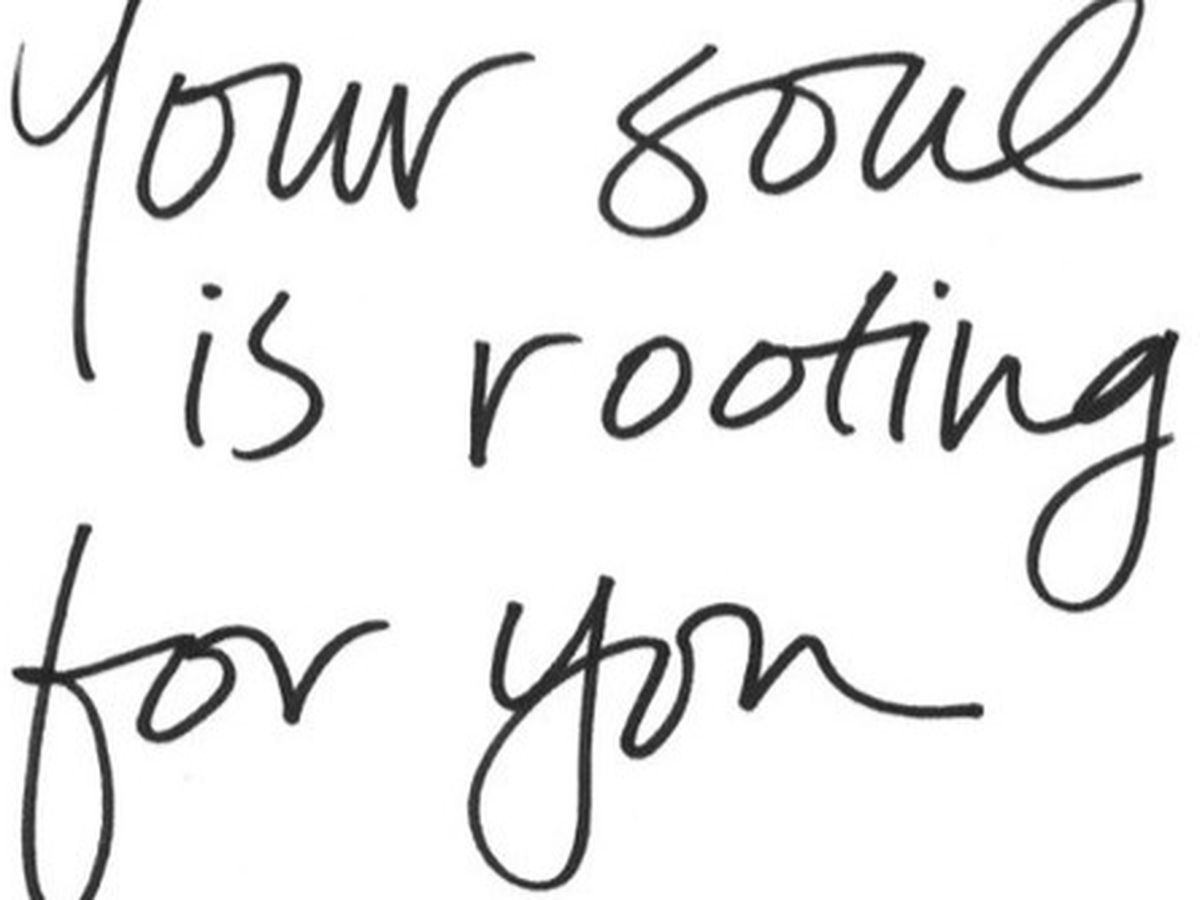 Your soul
is rooting
for you